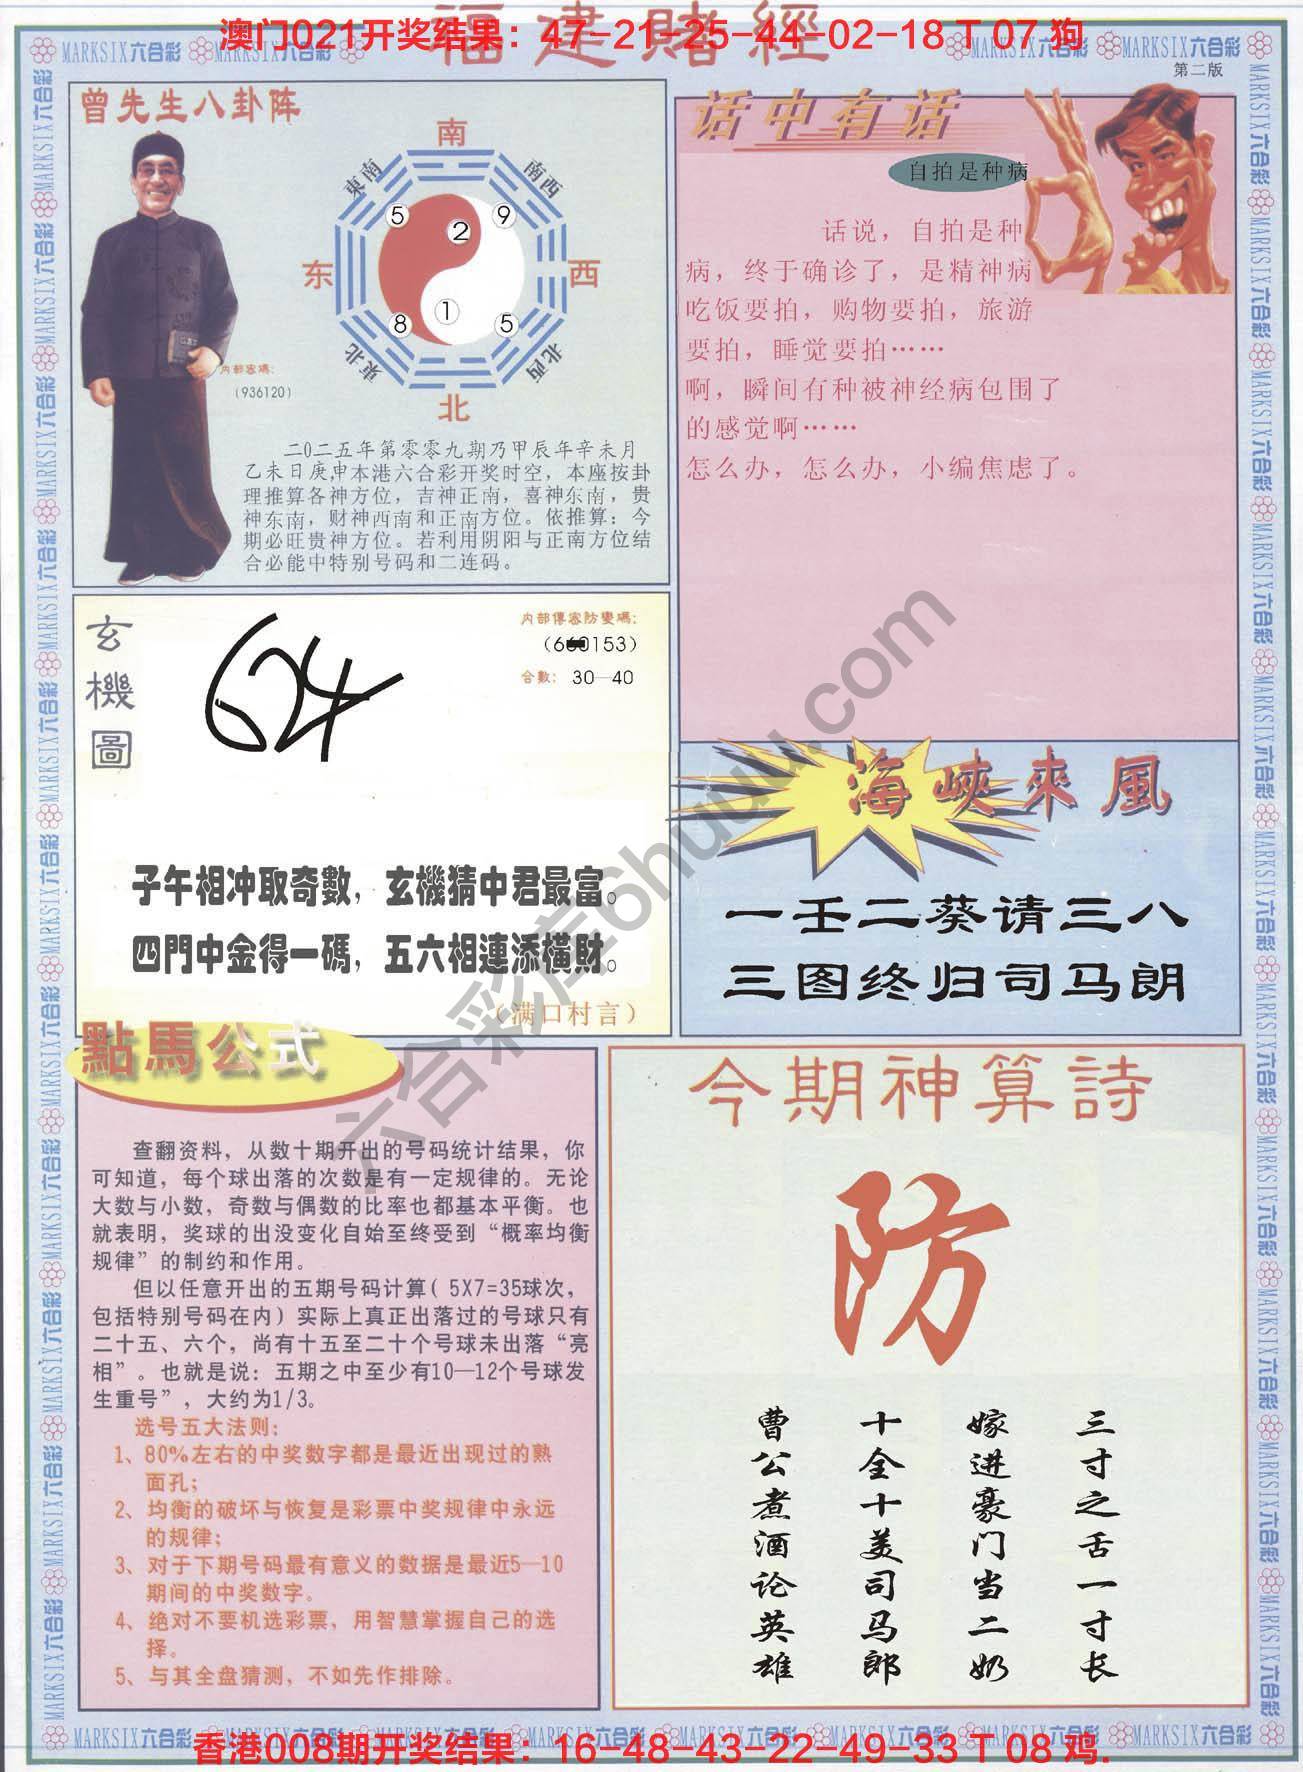 福建賭經
澳门021开奖结果：47-21-25-44-02-18 T 07 狗
MARKSIX六合彩
第二版
曾先生八卦阵
南
東南
南西
5
2
9
东
西
8
1
5
東北
北西
北
内部密碼：
（936120）
二O二五年第零零九期乃甲辰年辛未月
乙未日庚申本港六合彩开奖时空，本座按卦
理推算各神方位，吉神正南，喜神东南，贵
神东南，财神西南和正南方位。依推算：今
期必旺贵神方位。若利用阴阳与正南方位结
合必能中特别号码和二连码。
话中有话
自拍是种病
话说，自拍是种
病，终于确诊了，是精神病
吃饭要拍，购物要拍，旅游
要拍，睡觉要拍……
啊，瞬间有种被神经病包围了
的感觉啊……
怎么办，怎么办，小编焦虑了。
玄機圖
内部傳密防變碼：
合數：30—40
子午相冲取奇數，玄機猜中君最富。
四門中金得一碼，五六相連添橫財。
（满口村言）
海峽來風
一壬二葵请三八
三图终归司马朗
點馬公式
查翻资料，从数十期开出的号码统计结果，你
可知道，每个球出落的次数是有一定规律的。无论
大数与小数，奇数与偶数的比率也都基本平衡。也
就表明，奖球的出没变化自始至终受到“概率均衡
规律”的制约和作用。
但以任意开出的五期号码计算（5X7=35球次，
包括特别号码在内）实际上真正出落过的号球只有
二十五、六个，尚有十五至二十个号球未出落“亮
相”。也就是说：五期之中至少有10—12个号球发
生重号”，大约为1/3。
选号五大法则：
1、80%左右的中奖数字都是最近出现过的熟
面孔；
2、均衡的破坏与恢复是彩票中奖规律中永远
的规律；
3、对于下期号码最有意义的数据是最近5—10
期间的中奖数字。
4、绝对不要机选彩票，用智慧掌握自己的选
择。
5、与其全盘猜测，不如先作排除。
今期神算詩
防
三寸之舌一寸长
嫁进豪门当二奶
十全十美司马郎
曹公煮酒论英雄
六合彩库6huuu.com
香港008期开奖结果：16-48-43-22-49-33 T 08 鸡.